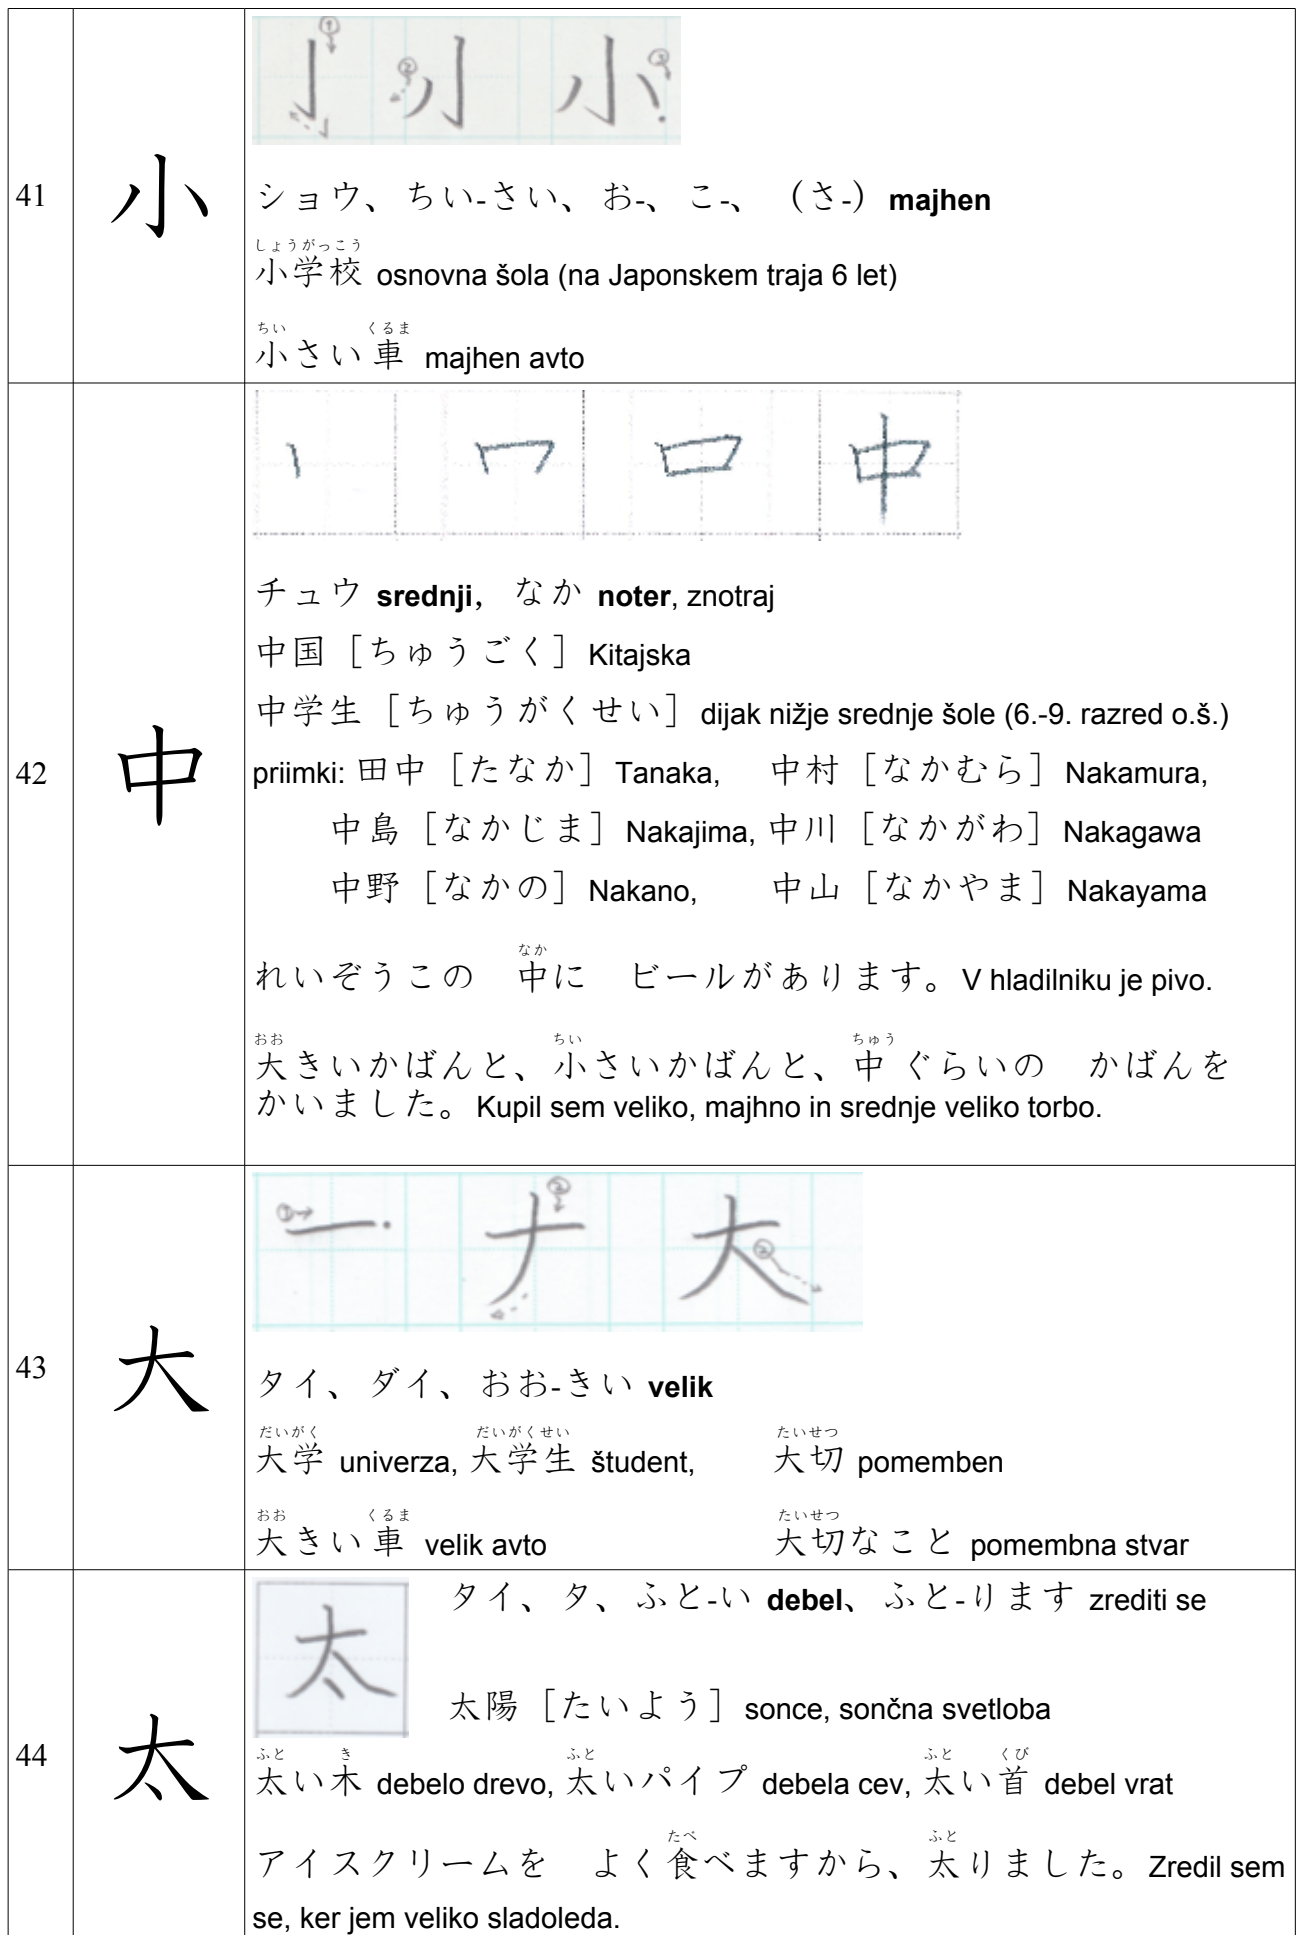 41
小
ショウ、ちい-さい、お-、こ-、（さ-）majhen
しょうがっこう
小学校 osnovna šola (na Japonskem traja 6 let)
ちい くるま
小さい車 majhen avto
42
中
チュウ srednji, なか noter, znotraj
中国［ちゅうごく］Kitajska
中学生［ちゅうがくせい］dijak nižje srednje šole (6.-9. razred o.š.)
priimki: 田中［たなか］Tanaka, 中村［なかむら］Nakamura,
中島［なかじま］Nakajima, 中川［なかがわ］Nakagawa
中野［なかの］Nakano, 中山［なかやま］Nakayama
なか
れいぞうこの　中に　ビールがあります。V hladilniku je pivo.
おお ちい ちゅう
大きいかばんと、小さいかばんと、中ぐらいの　かばんを
かいました。Kupil sem veliko, majhno in srednje veliko torbo.
43
大
タイ、ダイ、おお-きい velik
だいがく だいがくせい たいせつ
大学 univerza, 大学生 študent, 大切 pomemben
おお くるま たいせつ
大きい車 velik avto 大切なこと pomembna stvar
44
太
太
タイ、タ、ふと-い debel、ふと-ります zrediti se
太陽［たいよう］sonce, sončna svetloba
ふと き ふと ふと くび
太い木 debelo drevo, 太いパイプ debela cev, 太い首 debel vrat
たべ ふと
アイスクリームを　よく食べますから、太りました。Zredil sem
se, ker jem veliko sladoleda.